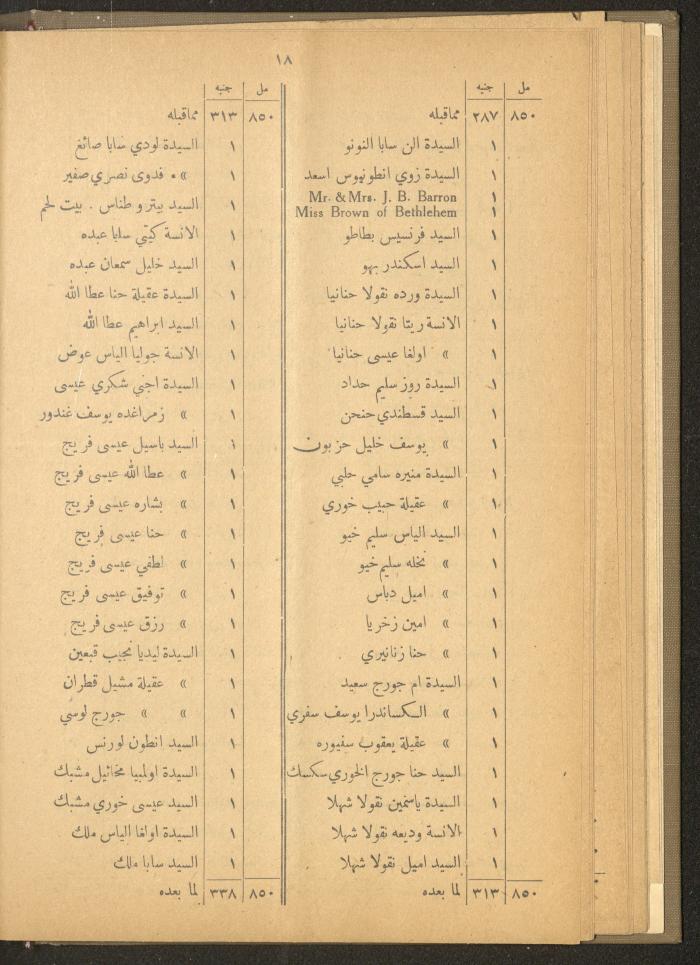 ١٨
مل جنيه
٨٥٠ ٢٨٧ مما قبله
١ السيدة الن سابا النونو
١ السيدة زوي انطونيوس اسعد
١ Mr. & Mrs. J. B. Barron
١ Miss Brown of Bethlehem
١ السيد فرنسيس بطاطو
١ السيد اسكندر بهو
١ السيدة ورده نقولا حنانيا
١ الانسة ريتا نقولا حنانيا
١ » اولغا عيسى حنانيا
١ السيدة روز سليم حداد
١ السيد قسطندي حنحن
١ » يوسف خليل حزبون
١ السيدة منيره سامي حلبي
١ » عقيلة حبيب خوري
١ السيد الياس سليم خيو
١ » نخله سليم خيو
١ » اميل دباس
١ » امين زخريا
١ » حنا زنانيري
١ السيدة ام جورج سعيد
١ » الكساندرا يوسف سفري
١ » عقيلة يعقوب سفيوره
١ السيد حنا جورج الخوري سكسك
١ السيدة ياسمين نقولا شهلا
١ الانسة وديعه نقولا شهلا
١ السيد اميل نقولا شهلا
٨٥٠ ٣١٣ لما بعده
مل جنيه
٨٥٠ ٣١٣ مما قبله
١ السيدة لودي سابا صائغ
١ » فدوى نصري صفير
١ السيد بيترو طناس . بيت لحم
١ الانسة كيتي سابا عبده
١ السيد خليل سمعان عبده
١ السيدة عقيلة حنا عطا الله
١ السيد ابراهيم عطا الله
١ الانسة جوليا الياس عوض
١ السيدة اجني شكري عيسى
١ » زمراغده يوسف غندور
١ السيد باسيل عيسى فريج
١ » عطا الله عيسى فريج
١ » بشاره عيسى فريج
١ » حنا عيسى فريج
١ » لطفي عيسى فريج
١ » توفيق عيسى فريج
١ » رزق عيسى فريج
١ السيدة ليديا نجيب قبعين
١ » عقيلة مشيل قطران
١ » » جورج لوسي
١ السيد انطون لورنس
١ السيدة اولمبيا مخائيل مشبك
١ السيد عيسى خوري مشبك
١ السيدة اولغا الياس ملك
١ السيد سابا ملك
٨٥٠ ٣٣٨ لما بعده